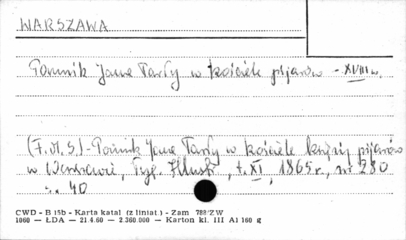 WARSZAWA
Pomnik Jana Tarły w kościele pijarów - XVIII w.
(F.M.S.) - Pomnik Jana Tarły w kościele księży pijarów
w Warszawie, Tyg. Illustr., t. XI, 1865 r., nr 280
s. 40
CWD - B 15b - Karta katal (z liniat.) - Zam 788/ZW
1000 — ŁDA — 21.4.60 — 2.360.000 — Karton kl. III A1 160 g